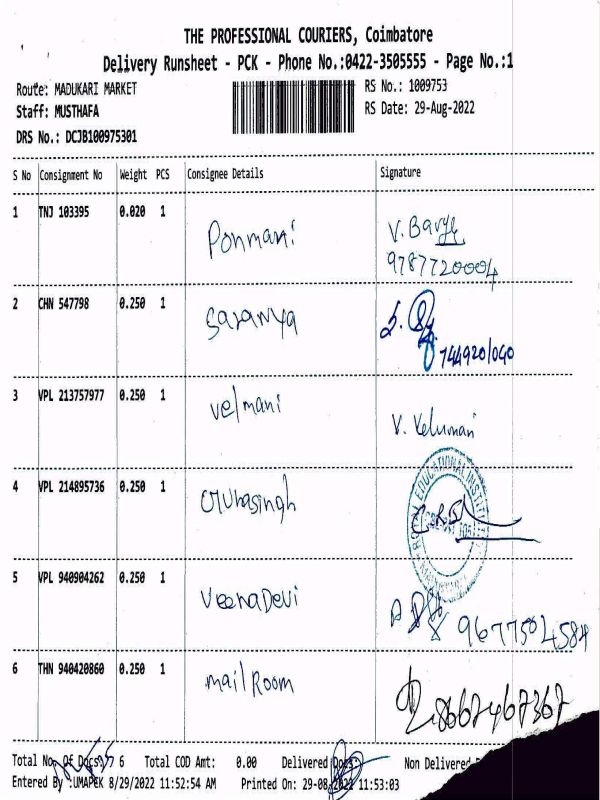 THE PROFESSIONAL COURIERS, Coimbatore
Delivery Runsheet - PCK - Phone No.:0422-3505555 - Page No.:1
Route: MADUKARI MARKET
RS No.: 1009753
Staff: MUSTHAFA
RS Date: 29-Aug-2022
DRS No.: DCJB100975301
S No Consignment No Weight PCS Consignee Details Signature
1 TNJ 103395 0.020 1
Ponmani
9787720004
2 CHN 547798 0.250 1
Saranya
3 VPL 213757977 0.250 1
Velmani
V. Velumani
4 VPL 214895736 0.250 1
EDUCATIONAL
5 VPL 940904262 0.250 1
VeenaDevi
9677504584
6 THN 940420860 0.250 1
mail Room
8667467367
Total No. Of Docs: 6 Total COD Amt: 0.00 Delivered Non Delivered
Entered By :UMAPCK 8/29/2022 11:52:54 AM Printed On: 29-08 11:53:03